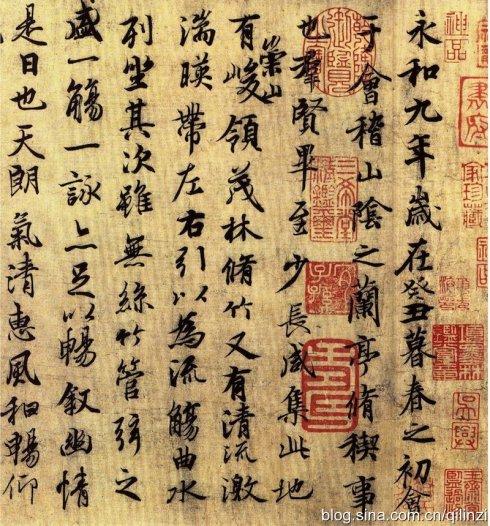 永和九年歲在癸丑暮春之初會
于會稽山陰之蘭亭脩稧事
也羣賢畢至少長咸集此地
有崇山峻領茂林脩竹又有清流激
湍暎帶左右引以為流觴曲水
列坐其次雖無絲竹管弦之
盛一觴一詠亦足以暢敘幽情
是日也天朗氣清惠風和暢仰
神品
blog.sina.com.cn/qilinzi